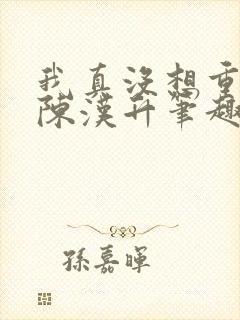 我真没想重
陈汉升笔趣
孙嘉晖